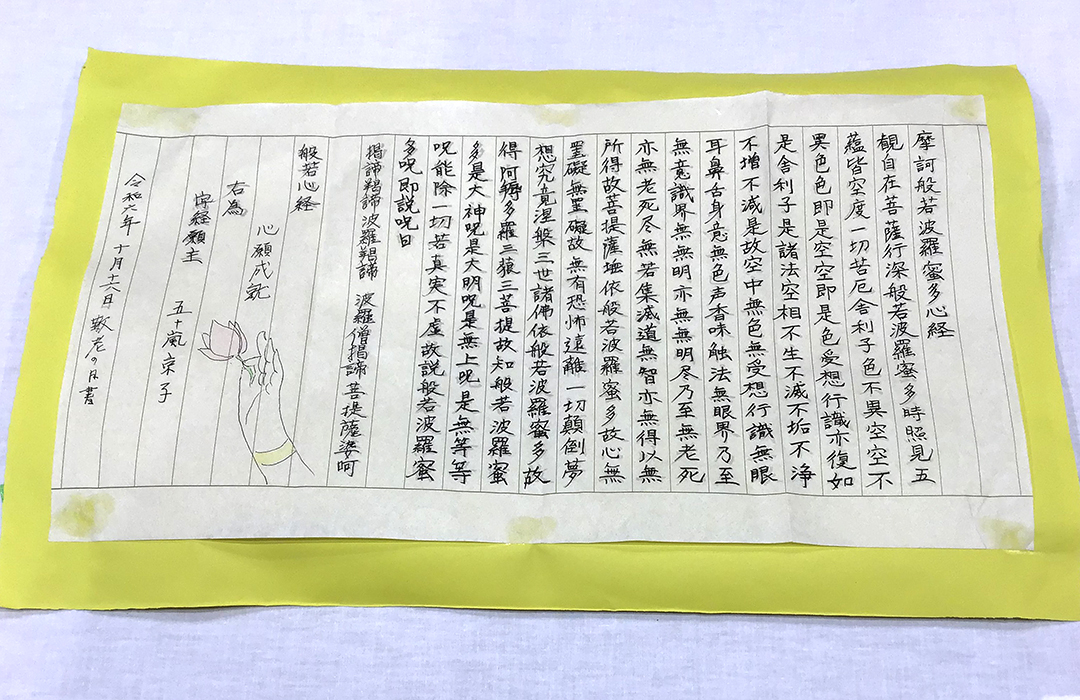 摩訶般若波羅蜜多心経
観自在菩薩行深般若波羅蜜多時照見五
蘊皆空度一切苦厄舎利子色不異空空不
異色色即是空空即是色受想行識亦復如
是舎利子是諸法空相不生不滅不垢不浄
不増不減是故空中無色無受想行識無眼
耳鼻舌身意無色声香味触法無眼界乃至
無意識界無無明亦無無明尽乃至無老死
亦無老死尽無苦集滅道無智亦無得以無
所得故菩提薩埵依般若波羅蜜多故心無
罣礙無罣礙故無有恐怖遠離一切顛倒夢
想究竟涅槃三世諸佛依般若波羅蜜多故
得阿耨多羅三藐三菩提故知般若波羅蜜
多是大神呪是大明呪是無上呪是無等等
呪能除一切苦真実不虚故説般若波羅蜜
多呪即説呪曰
羯諦羯諦波羅羯諦 波羅僧羯諦菩提薩婆呵
般若心経
心願成就
右為
写経願主
五十嵐京子
令和六年十月十六日敬老の月書